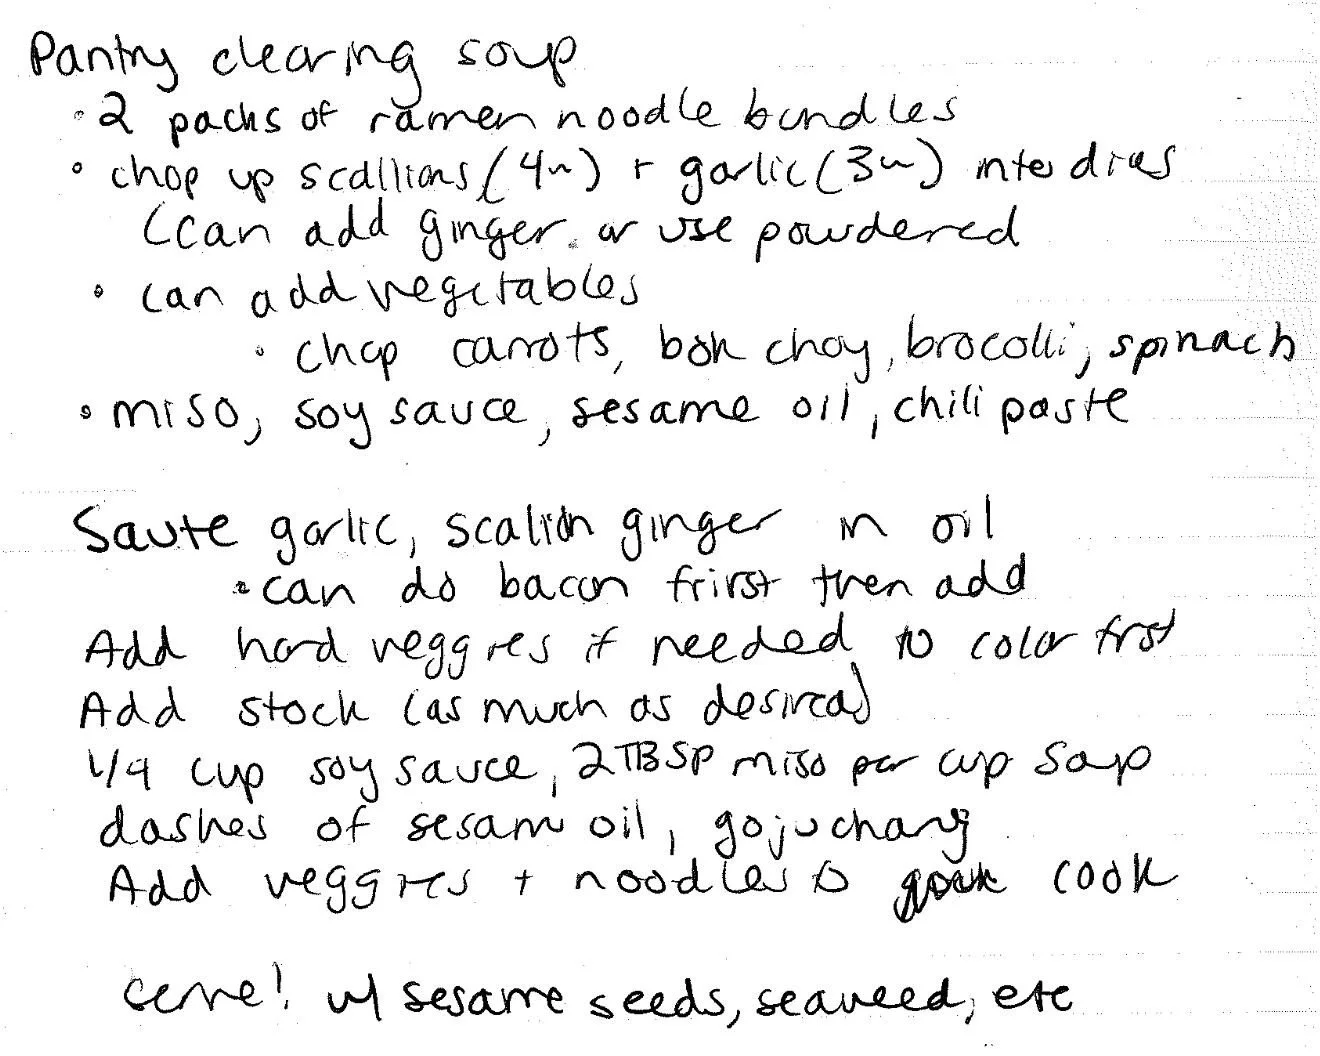 Pantry clearing soup
• 2 packs of ramen noodle bundles
• chop up scallions (4~) + garlic (3~) into dices
(can add ginger or use powdered
• can add vegetables
• chop carrots, bok choy, brocolli, spinach
• miso, soy sauce, sesame oil, chili paste
Saute garlic, scalion ginger in oil
• can do bacon frirst then add
Add hard veggies if needed to color first
Add stock (as much as desired)
1/4 cup soy sauce, 2 TBSP miso per cup soup
dashes of sesame oil, gojuchang
Add veggies + noodles to cook
serve! w/ sesame seeds, seaweed, etc